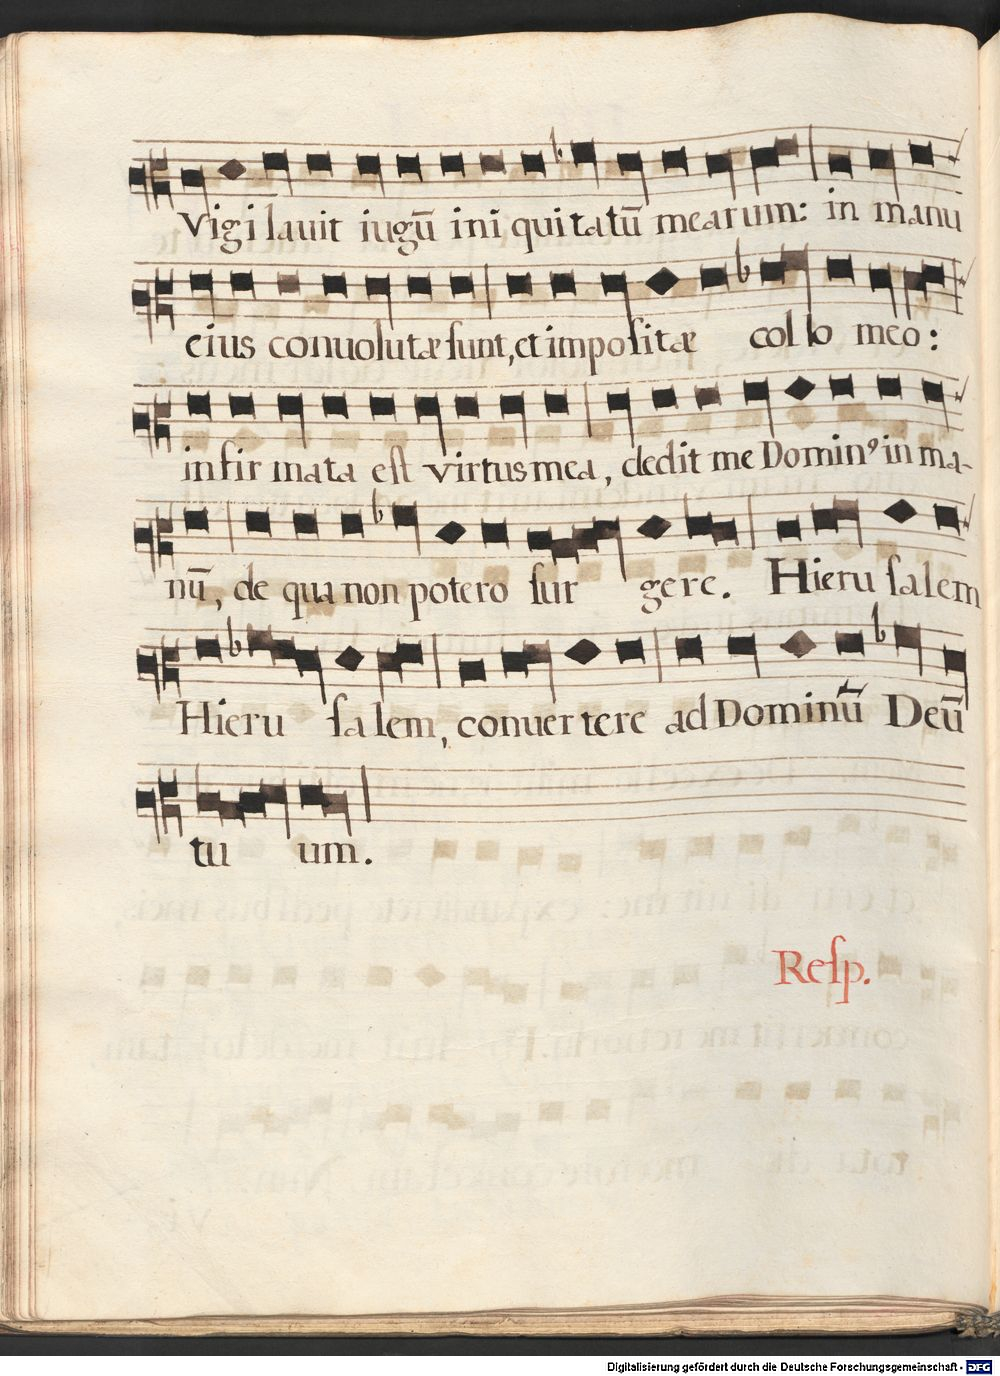 Vigilavit iugū iniquitatū mearum: in manu
eius convolutæ sunt, et impositæ collo meo:
infirmata est virtus mea, dedit me Dominꝰ in ma-
nū, de qua non potero surgere. Hierusalem
Hierusalem, convertere ad Dominū Deū
tuum.
Resp.
Digitalisierung gefördert durch die Deutsche Forschungsgemeinschaft - DFG